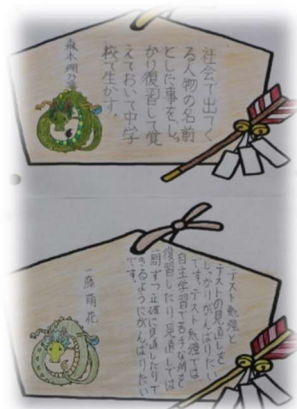 社会で出てく
る人物の名前
とした事をしっ
かり復習して覚
えておいて中学
校で生かす。
テスト勉強と
テストの見直しを
しっかりがんばりたい
です。テスト勉強では、
自主学習で苦手な所を
復習したり見直しでは
一問ずつ正確に見直したりで
きるようにがんばりたい
です。
萌花